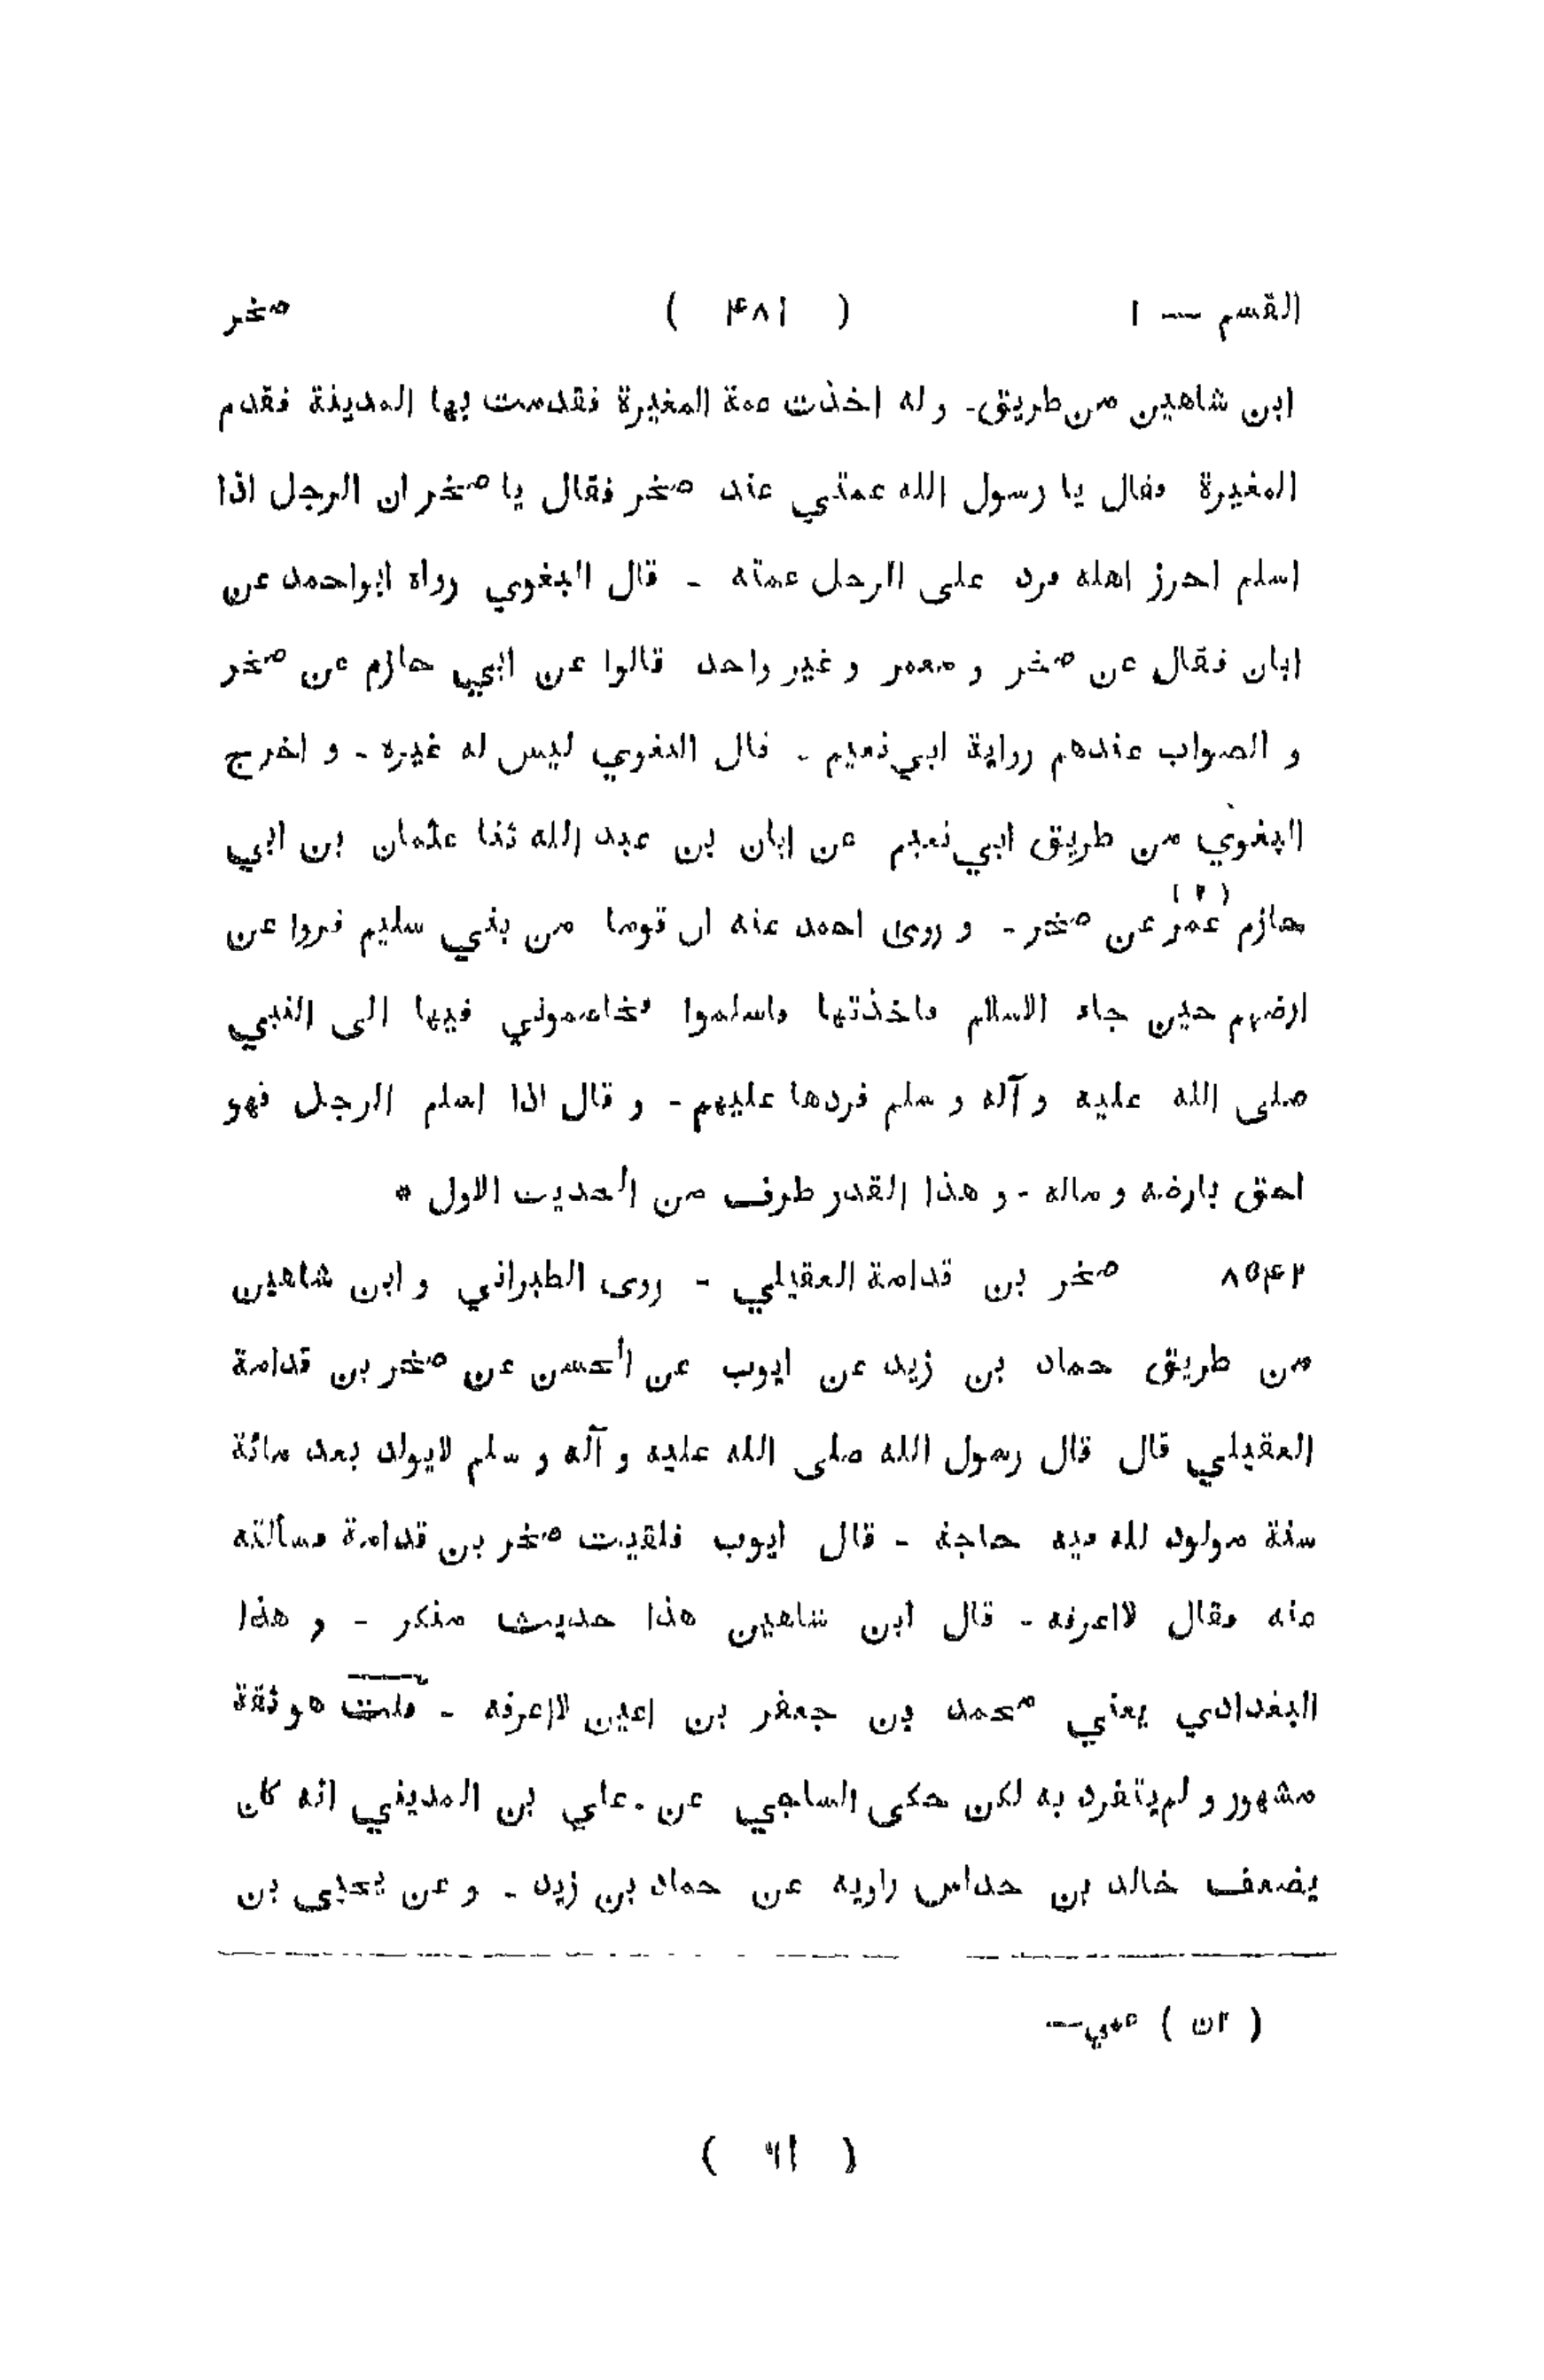 القسم — ١ ( ۴٨١ ) صخر
ابن شاهين من طريق - و له اخذت عمة المغيرة فقدمت بها المدينة فقدم
المغيرة فقال يا رسول الله عمتي عند صخر فقال يا صخر ان الرجل اذا
اسلم احرز اهله فرد على الرجل عمته - قال البغوي رواه ابو احمد عن
ابان فقال عن صخر و معمر و غير واحد قالوا عن ابي حازم عن صخر
و الصواب عندهم رواية ابي نعيم - قال البغوي ليس له غيره - و اخرج
البغوي من طريق ابي نعيم عن ابان بن عبد الله ثنا عثمان بن ابي
حازم عمر (٢) عن صخر - و روى احمد عنه ان قوما من بني سليم فروا عن
ارضهم حين جاء الاسلام فاخذتها فاسلموا فخاصموني فيها الى النبي
صلى الله عليه و آله و سلم فردها عليهم - و قال اذا اسلم الرجل فهو
احق بارضه و ماله - و هذا القدر طرف من الحديث الاول *
٨٥۴٢ صخر بن قدامة العقيلي - روى الطبراني و ابن شاهين
من طريق حماد بن زيد عن ايوب عن الحسن عن صخر بن قدامة
العقيلي قال قال رسول الله صلى الله عليه و آله و سلم لايولد بعد مائة
سنة مولود لله فيه حاجة - قال ايوب فلقيت صخر بن قدامة فسألته
عنه فقال لااعرفه - قال ابن شاهين هذا حديث منكر - و هذا
البغدادي يعني محمد بن جعفر بن اعين لااعرفه - قلت هو ثقة
مشهور و لم يتفرد به لكن حكى الساجي عن علي بن المديني انه كان
يضعف خالد بن خداس راويه عن حماد بن زيد - و عن يحيى بن
( ٢ن )
( ٦١ )